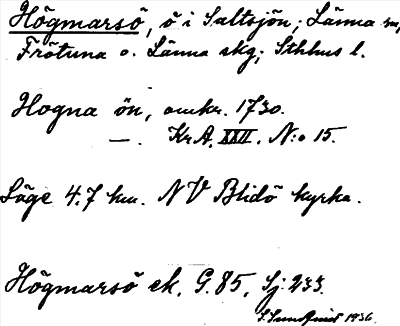 Högmarsö, ö i Saltsjön; Länna sn,
Frötuna o. Länna skg; Sthlms l.
Hogna ön, omkr. 1730.
—. Kr.A. XXII. N:o 15.
Läge 4.7 km. NV Blidö kyrka.
Högmarsö ek. G. 85, Sj: 233.
1936